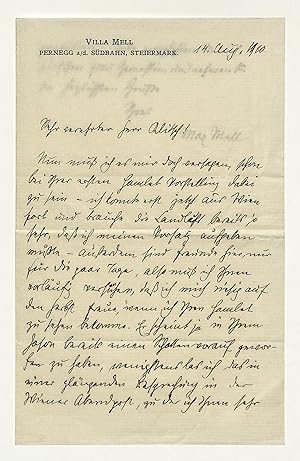 VILLA MELL
PERNEGG a/d. SÜDBAHN, STEIERMARK.
14. Aug. 1910
Sehr verehrter Herr
Max Mell
Nun muß ich es mir doch versagen, schon
bei Ihrer ersten Hamlet Vorstellung dabei
zu sein – ich komme erst jetzt aus Wien
fort und brauche die Landluft bereits so
sehr, daß ich meinen Vorsatz aufgeben
mußte – außerdem sind Freunde hier, nur
für die paar Tage, also muß ich Ihnen
vorläufig versichern, daß ich mich riesig auf
den Herbst freue, wenn ich Ihren Hamlet
zu sehen bekomme. Er scheint ja in Ihrem
bereits einen voraus geworfen
zu haben, wenigstens las ich das in
einer glänzenden Besprechung in der
Wiener Abendpost, zu der ich Ihnen sehr